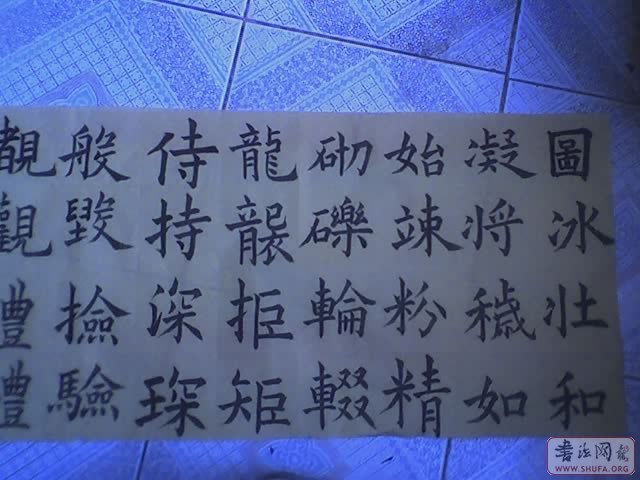 圖冰壮和
凝将穢如
始竦粉精
砌礫輪輟
龍襲拒矩
侍持深琛
般毀撿驗
觀
WWW.SHUFA.ORG